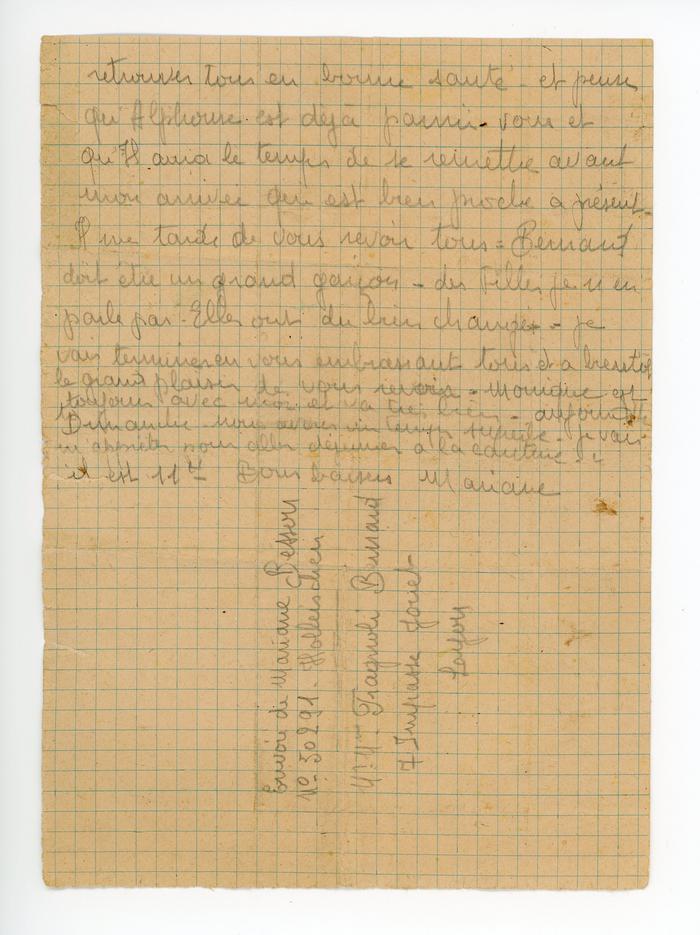 retrouver tous en bonne santé - et pense
qu'Alphonse est déjà parmi - vous et
qu'Il aura le temps de se remettre avant
mon arrivée qui est bien proche a présent -
Il me tarde de vous revoir tous = Bernard
doit être un grand garçon - des Filles je n en
parle pas - Elles ont du bien changer - je
vais terminer en vous embrassant tous et a bientôt
le grand plaisir de vous revoir - Monique est
toujours avec moi et va très bien - aujourd'
Dimanche nous avons un temps superbe - je vais
m'apprêter pour aller déjeuner a la cantine -
il est 11H Bons baisers Mariane
Envoi de Mariane Besson
N° 50291 - Holleischen
Mr. Mme Fragnoli Bernard
7 Impasse Jouet